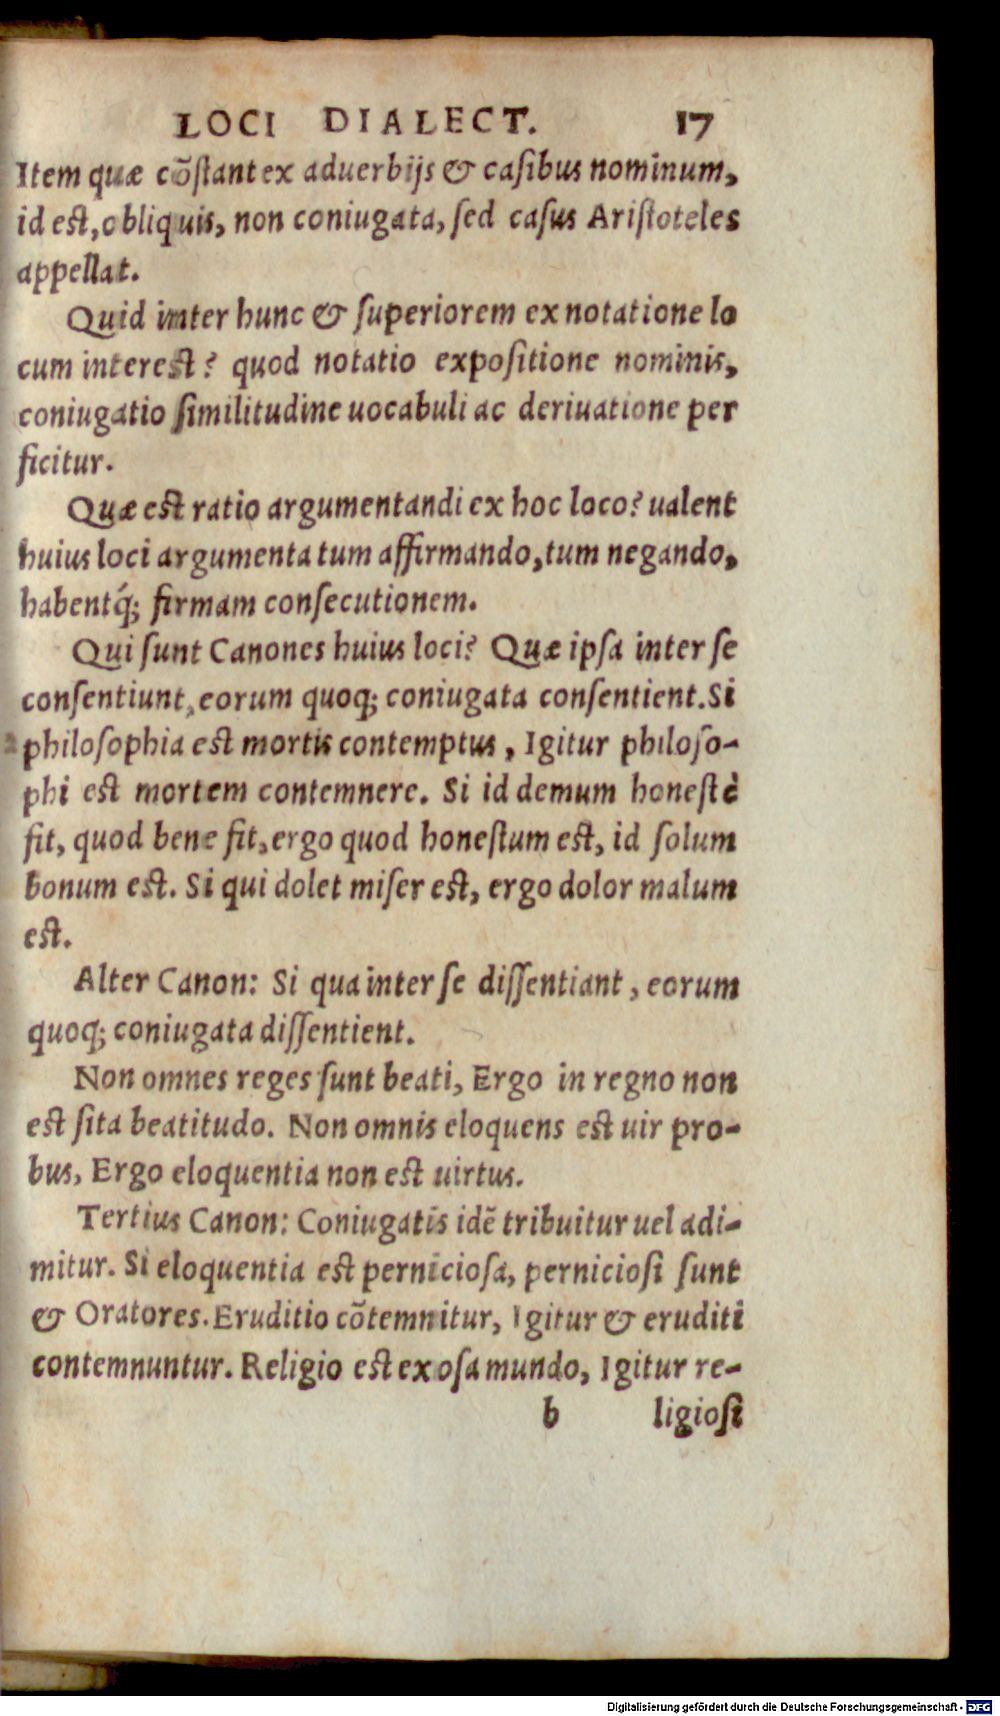 LOCI DIALECT. 17
Item quæ cõſtant ex aduerbijs & caſibus nominum,
id eſt, obliquis, non coniugata, ſed caſus Ariſtoteles
appellat.
Quid inter hunc & ſuperiorem ex notatione lo
cum intereſt? quod notatio expoſitione nominis,
coniugatio ſimilitudine uocabuli ac deriuatione per
ficitur.
Quæ eſt ratio argumentandi ex hoc loco? ualent
huius loci argumenta tum affirmando, tum negando,
habentq́; firmam conſecutionem.
Qui ſunt Canones huius loci? Quæ ipſa inter ſe
conſentiunt, eorum quoq; coniugata conſentient. Si
philoſophia eſt mortis contemptus, Igitur philoſo-
phi eſt mortem contemnere. Si id demum honeſtè
fit, quod bene fit, ergo quod honeſtum eſt, id ſolum
bonum eſt. Si qui dolet miſer eſt, ergo dolor malum
eſt.
Alter Canon: Si qua inter ſe diſſentiant, eorum
quoq; coniugata diſſentient.
Non omnes reges ſunt beati, Ergo in regno non
eſt ſita beatitudo. Non omnis eloquens eſt uir pro-
bus, Ergo eloquentia non eſt uirtus.
Tertius Canon: Coniugatis idẽ tribuitur uel adi-
mitur. Si eloquentia eſt pernicioſa, pernicioſi ſunt
& Oratores. Eruditio cõtemnitur, Igitur & eruditi
contemnuntur. Religio eſt exoſa mundo, Igitur re-
b ligioſi
Digitalisierung gefördert durch die Deutsche Forschungsgemeinschaft - DFG